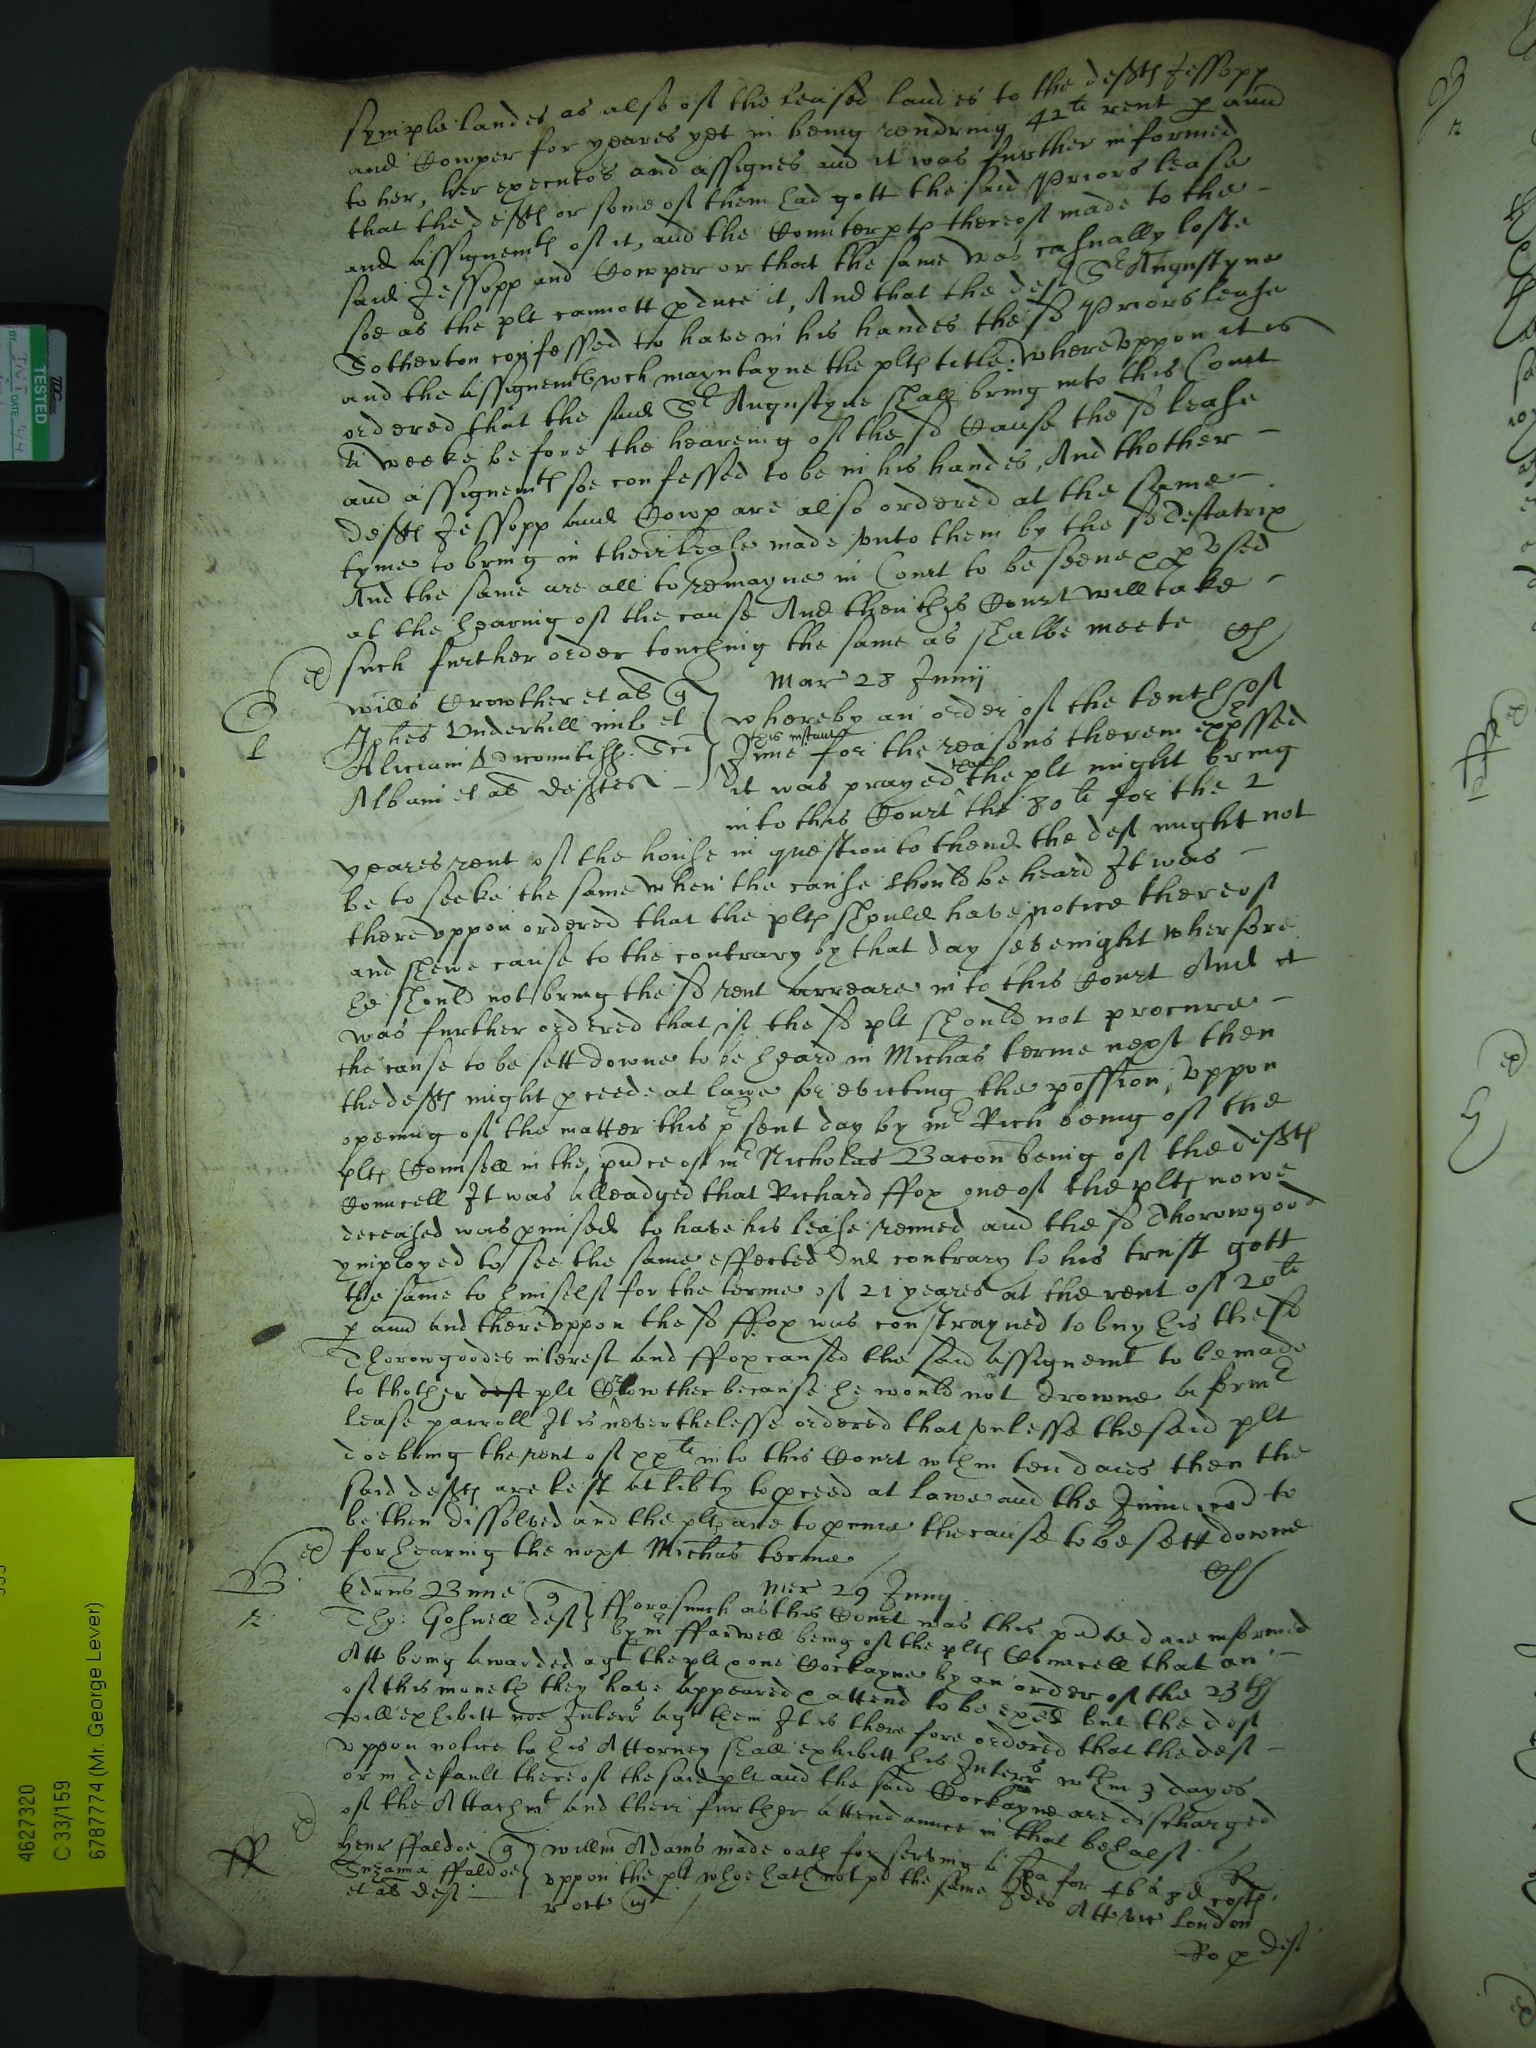 symple landes as also of the leased landes to the defts Jessopp
and Cowper for yeares yet in being rendring 42li rent p ann
to her, her executors and assignes and it was further informed
that the defts or some of them had gott the said Priors lease
and assignemts of it, and the Counterpte thereof made to the
said Jessopp and Cowper or that the same was casually loste
soe as the plt cannott pduce it, And that the deft Sr Augustyne
Sotherton confessed to have in his handes the sd Priors lease
and the assignemts wch mayntayne the plts title. whereuppon it is
ordered that the said Sr Augustyne shall bring into this Court
a weeke before the heareing of the sd Cause the sd lease
and assignemts soe confessed to be in his handes, And thother
defts Jessopp and Cowp are also ordered at the same
tyme to bring in their lease made unto them by the sd Testatrix
And the same are all to remayne in Court to be seene & pused
at the hearing of the cause And then this Court will take
such further order touching the same as shalbe meete
Mar 28 Junij
Willus Crowther et al q
Johes Underhill mil et
Aliciam
Albani et al defts
whereby an order of the tenth of
June this instant for the reasons therein expssed
it was prayed that the plt might bring
into this Court the 80li for the 2
yeares rent of the house in question to thend the deft might not
be to seeke the same when the cause should be heard It was
thereuppon ordered that the plts should have notice thereof
and shewe cause to the contrary by that day sevenight wherfore
he should not bring the sd rent arreare into this Court And it
was further ordered that if the sd plt should not procure
the cause to be sett downe to be heard in Michas terme next then
the defts might pceede at lawe for evicting the possion, Uppon
opening of the matter this psent day by mr Rich being of the
plts Counsell in the psnce of mr Nicholas Bacon being of the defts
Councell It was alleadged that Richard ffox one of the plts nowe
deceased was pmised to have his lease renued and the sd Thorowgood
ymployed to see the same effected did contrary to his trust gott
the same to himself for the terme of 21 yeares at the rent of 20li
p ann and thereuppon the sd ffox was constrayned to buy his the sd
Thorowgoodes interest and ffox caused the said assignemt to be made
to thother deft plt Crowther because he would not drowne a former
lease parroll It is neverthelesse ordered that unlesse the said plt
doe bring the rent of xxli into this Court wthin ten daies then the
said defts are left at libty to pceed at lawe and the Iniunccon to
be then dissolved and the plts are to pcure the cause to be sett downe
for hearing the next Michas terme
Mer 29 Junij
Edrus Bune q
Tho: Goswell deft
fforasmuch as this Court was this psnte daie informed
by mr ffarwell being of the plts Councell that an
Att being awarded agt the plt & one Cockayne by an order of the 23th
of this moneth they have appeared & attend to be exed but the deft
will exhibitt noe Interrs agt them It is therefore ordered that the deft
uppon notice to his Attorney shall exhibitt his Interrs wthin 3 dayes
or in default thereof the said plt and the said Cockayne are discharged
of the Attachmt and their further attendaunce in that behalf
Henr ffaldoe q
Suzanna ffaldoe
et al deft
Willm Adams made oath for serving a spa for 46s 8d costs
uppon the plt whoe hath not pd the same Ideo Att vic London
Ro p deft
TESTED
INT
DATE
4627320
C 33/159
6787774 (Mr. George Lever)